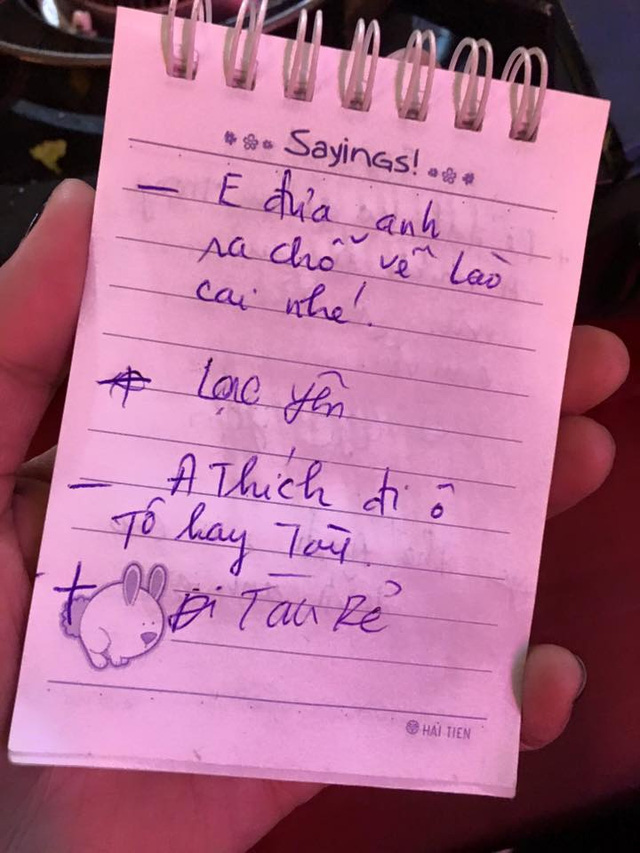 Sayings!
– E đưa anh
ra chỗ về Lào
cai nhé!
+ Lạc yên
– A Thích đi ô
Tô hay Tàu.
+ Đi Tàu Rẻ
HẢI TIẾN